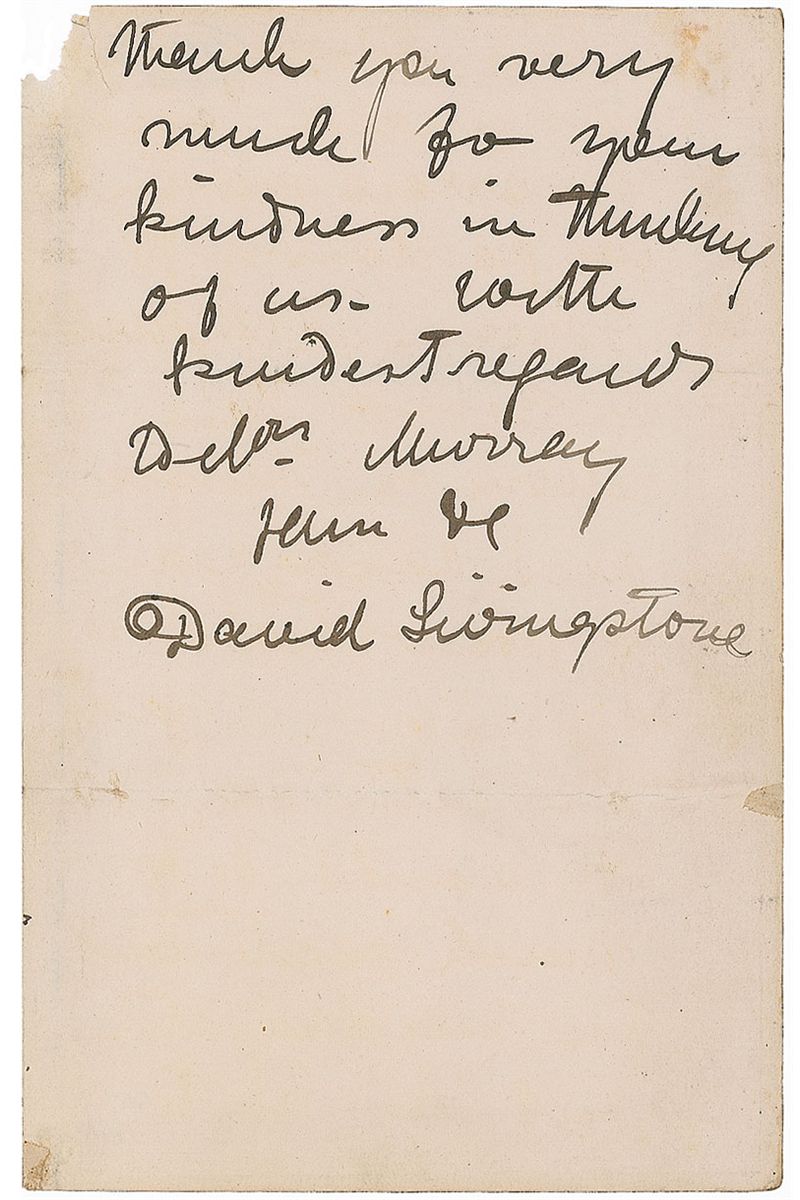 Thank you very
much for your
kindness in thinking
of us - with
kindest regards
to Mrs. Murray
Yours &c
David Livingstone